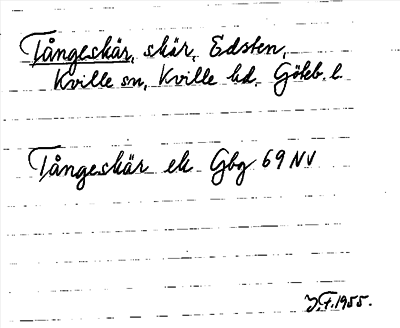 Tångeskär, skär, Edsten,
Kville sn, Kville hd, Göteb. l.
Tångeskär ek Gbg 69 NV
J.F. 1955.